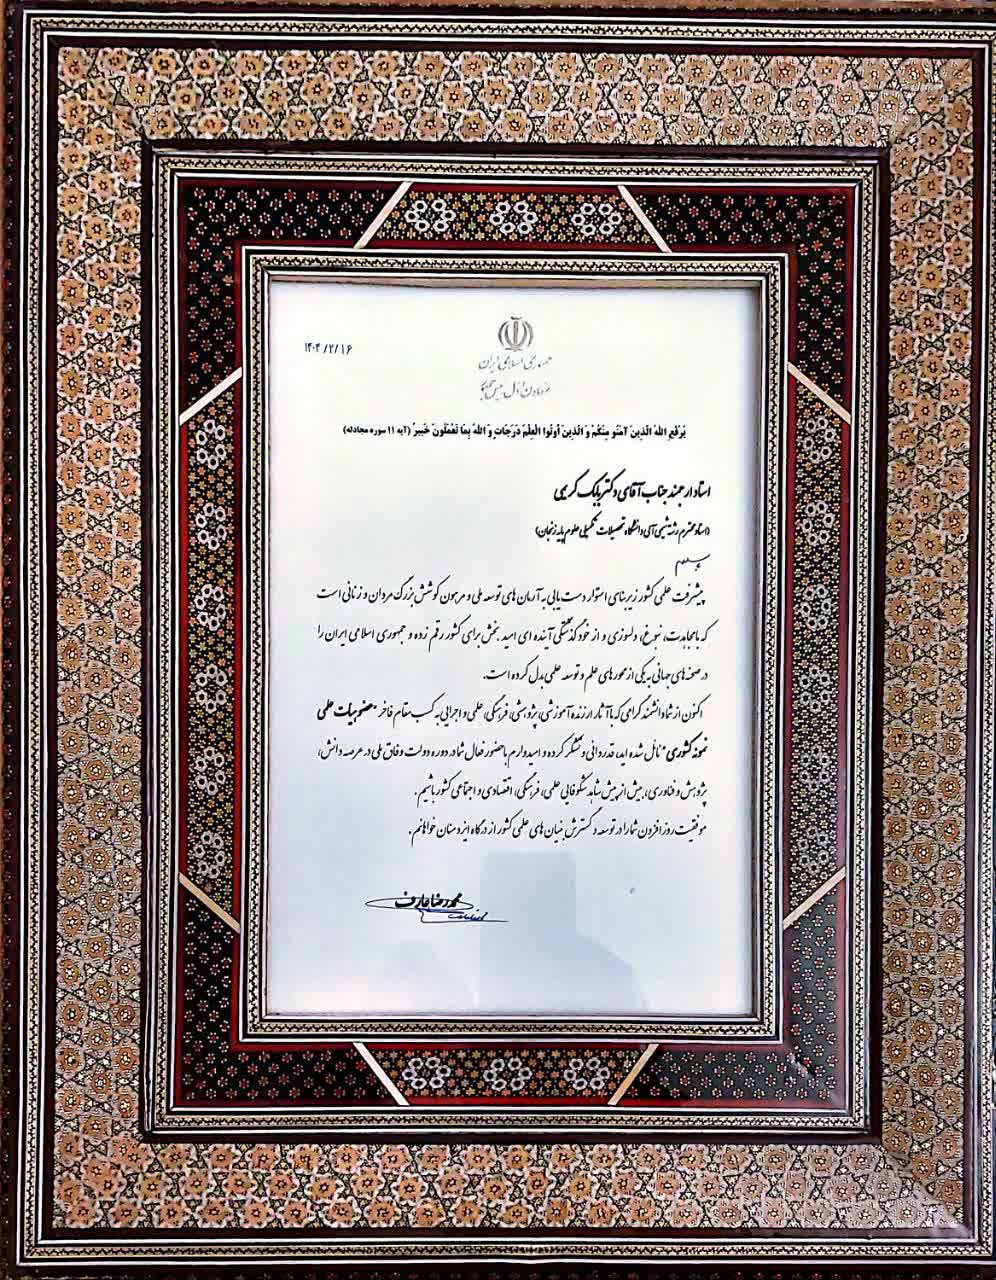 ۱۴۰۴/۲/۱۶
جمهوری اسلامی ایران
معاون اول رئیس جمهور
یَرْفَعِ اللهُ الَّذینَ آمَنُو مِنْکُمْ وَ الَّذینَ اُوتُوا الْعِلْمَ دَرَجاتٍ وَ اللهُ بِمَا تَعْمَلُونَ خَبیرٌ (آیه ۱۱ سوره مجادله)
استاد ارجمند جناب آقای دکتر بابک کریمی
(استاد محترم رشته شیمی آلی دانشگاه تحصیلات تکمیلی علوم پایه زنجان)
با سلام
پیشرفت علمی کشور زیربنای استوار دست یابی به آرمان های توسعه ملی و مرهون کوشش بزرگ مردان و زنانی است
که با مجاهدت، نبوغ، دلسوزی و از خود گذشتگی آینده ای امید بخش برای کشور رقم زده و جمهوری اسلامی ایران را
در صحنه های جهانی به یکی از محورهای علم و توسعه علمی بدل کرده است.
اکنون از شما دانشمند گرامی که با آثار ارزنده آموزشی، پژوهشی، فرهنگی، علمی و اجرایی به کسب مقام فاخر "عضو هیات علمی
نمونه کشوری" نائل شده اید، قدردانی و تشکر کرده و امیدوارم با حضور فعال شما در دوره دولت وفاق ملی در عرصه دانش،
پژوهش و فناوری، بیش از پیش شاهد شکوفایی علمی، فرهنگی، اقتصادی و اجتماعی کشور باشیم.
موفقیت روز افزون شما را در توسعه و گسترش بنیان های علمی کشور از درگاه ایزد منان خواهانم.
محمدرضا عارف